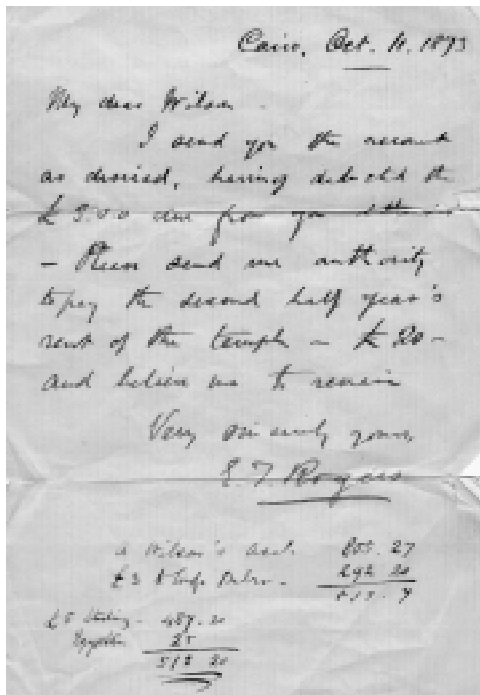 Cairo, Oct. 11. 1873
My dear Wilson
I send you the amount
as desired, having deducted the
£ 3.0.0 due from you
- Please send me authority
to pay the second half year's
rent of the temple - 20 -
and believe me to remain
Very sincerely yours
E T Rogers
A Wilson's acct. 805. 27
£3 292 20
513. 7
£5 Sterling - 487. 20
Egyptian 25
512 20